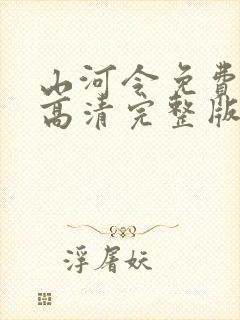 山河令免费
高清完整版
浮屠妖